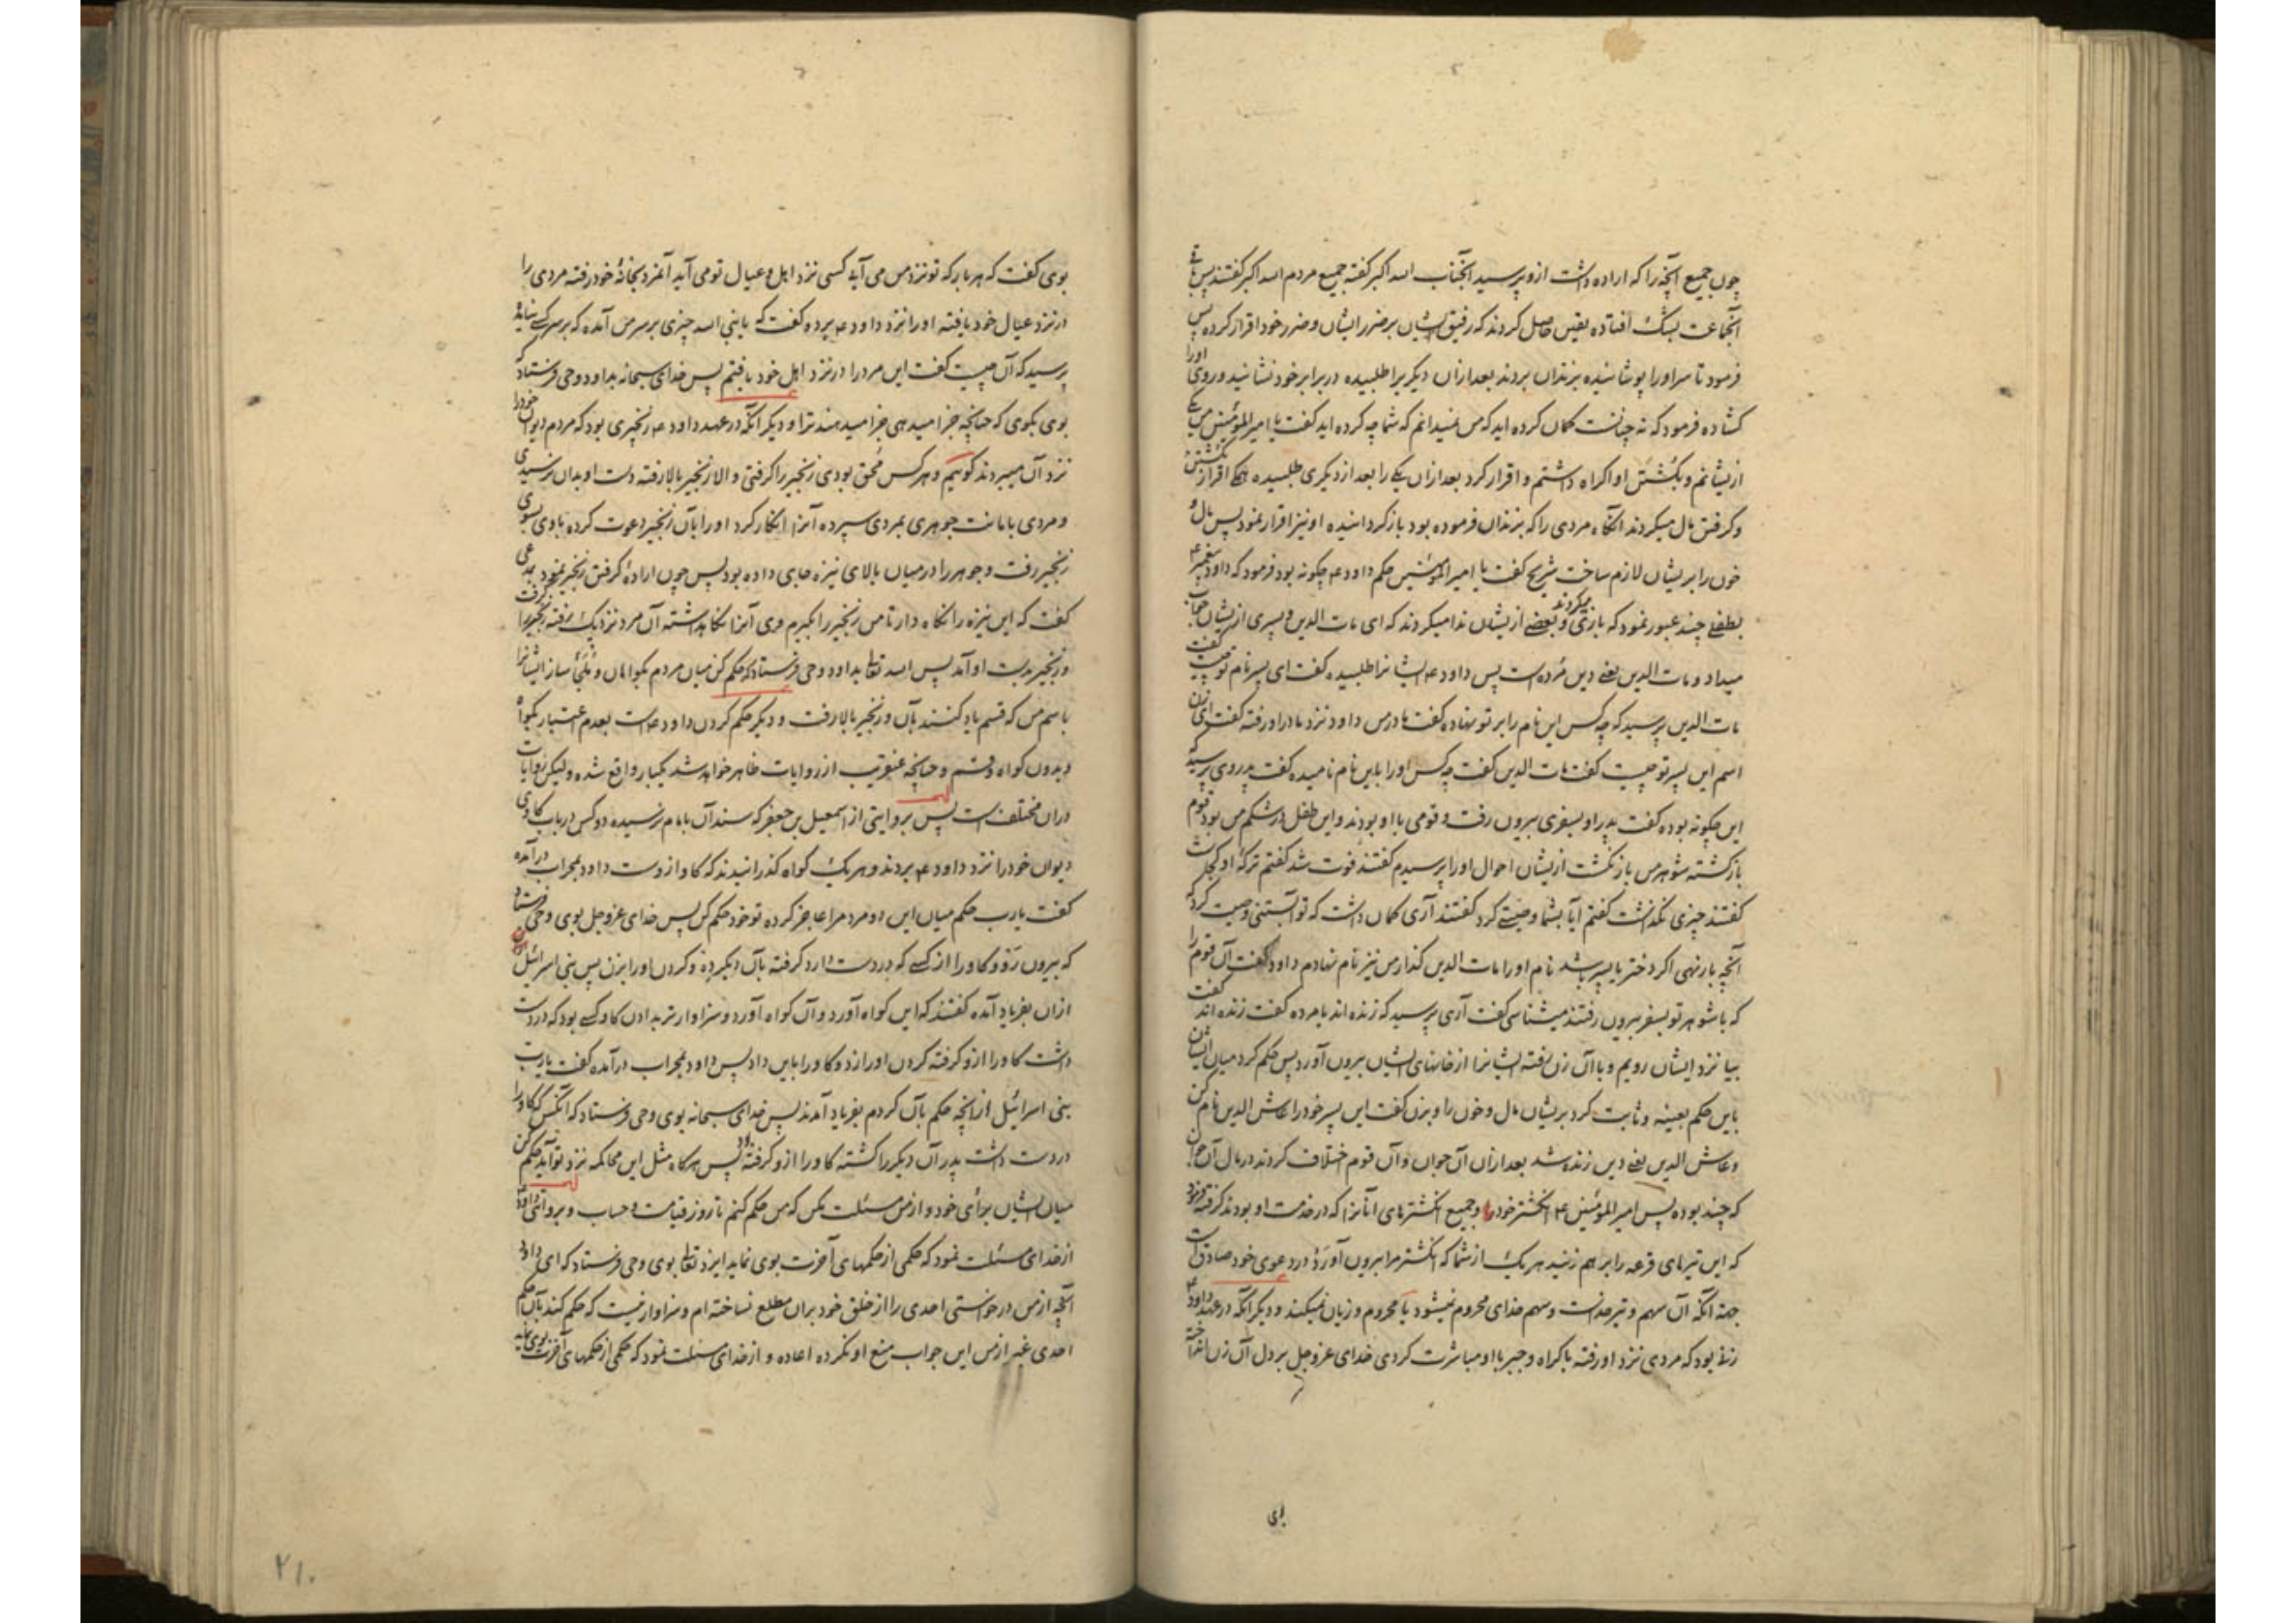 چون جمیع آنچه را که اراده داشت ازو پرسید آنجناب الله اکبر گفته جمیع مردم الله اکبر گفتند پس باقی
آنجماعت بشک افتاده یقین حاصل کردند که رفیق ایشان بر ضرر ایشان و ضرر خود اقرار کرده پس
فرمود تا سر او را پوشانیده بزندان بردند بعد ازان دیگریرا طلبیده در برابر خود نشانید و روی او را
کشاده فرمود که نه چنانست گمان کرده اید که من نمیدانم که شما چه کرده اید گفت یا امیرالمؤمنین من یکی
ازیشانم و بکشتن او اکراه داشتم و اقرار کرد بعد ازان یکی را بعد از دیگری طلبیده همگی اقرار بکشتن
و گرفتن مال میکردند آنگاه مردی را که بزندان فرموده بود بازگردانیده او نیز اقرار نمود پس مال و
خون را بریشان لازم ساخت شریح گفت یا امیرالمؤمنین حکم داود ع چگونه بود فرمود که داود پیغمبر ع
بطفلی چند عبور نمود که بازی میکردند و بعضی ازیشان ندا میکردند که ای مات الدین و پسری ازیشان جواب
میداد و مات الدین یعنی دین مرده است پس داود ع ایشانرا طلبیده گفت ای پسر نام تو چیست گفت
مات الدین پرسید که چه کس این نام را بر تو نهاده گفت مادر من داود نزد مادر او رفته گفت ای زن
اسم این پسر تو چیست گفت مات الدین گفت چه کس او را باین نام نامیده گفت پدر وی پرسید که
این چگونه بوده گفت پدر او بسفری بیرون رفت و قومی با او بودند و این طفل در شکم من بود قوم
بازگشته شوهر من باز نگشت ازیشان احوال او را پرسیدم گفتند فوت شد گفتم ترکه او کجاست
گفتند چیزی نگذاشت گفتم آیا بشما وصیتی کرد گفتند آری گمان داشت که تو آبستنی وصیت کرد که
آنچه بار نهی اگر دختر یا پسر باشد نام او را مات الدین گذار من نیز نام نهادم داود گفت آن قوم را
که با شوهر تو بسفر بیرون رفتند میشناسی گفت آری پرسید که زنده اند یا مرده گفت زنده اند گفت
بیا نزد ایشان رویم و با آن زن رفته ایشانرا از خانهای ایشان بیرون آورد پس حکم کرد میان ایشان
باین حکم بعینه و ثابت کرد بریشان مال و خون را و بزن گفت این پسر خود را عاش الدین نام کن
و عاش الدین یعنی دین زنده شد بعد ازان آن جوان و آن قوم اختلاف کردند در مال آن جوان
که چند بوده پس امیرالمؤمنین ع انگشتر خود را و جمیع انگشترهای آنانرا که در خدمت او بودند گرفته فرمود
که این تیرهای قرعه را بر هم زنید هر یک از شما که انگشتر مرا بیرون آورد در دعوی خود صادق است
جهة آنکه آن سهم و تیر خداست و سهم خدای محروم نمیشود یا محروم و زیان نمیکند و دیگر آنکه در عهد داود ع
زنی بود که مردی نزد او رفته باکراه و جبر با او مباشرت کردی خدای عزوجل بر دل آن زن انداخته
بوی گفت که هر بار که تو نزد من می آیی کسی نزد اهل و عیال تو می آید آنمرد بخانهٔ خود رفته مردی را
در نزد عیال خود یافته او را نزد داود ع برده گفت که یا نبی الله چیزی بر سر من آمده که بر سر کسی نیامده
پرسید که آن چیست گفت این مرد را در نزد اهل خود یافتم پس خدای سبحانه بداود وحی فرستاد که
بوی بگوی که چنانچه جزا میدهی جزا میدهند ترا و دیگر آنکه در عهد داود ع زنجیری بود که مردم دیوان خود را
نزد آن میبردند گوئیم و هر کس محق بودی زنجیر را گرفتی و الا زنجیر بالا رفته دست او بدان نرسیدی
و مردی بامانت جوهری بمردی سپرده آنرا انکار کرد او را بآن زنجیر دعوت کرده با وی بسوی
زنجیر رفت و جوهر را در میان بالای نیزه جای داده بود پس چون ارادهٔ گرفتن زنجیر نمود بمدعی
گفت که این نیزه را نگاه دار تا من زنجیر را بگیرم وی آنرا نگاه داشته آن مرد نزدیک رفته زنجیر را گرفت
و زنجیر بدست او آمد پس الله تعالی بداود وحی فرستاد که حکم کن میان مردم بگواهان و ملجأ ساز ایشانرا
باسم من که قسم یاد کنند بآن و زنجیر بالا رفت و دیگر حکم کردن داود ع است بعدم اعتبار گواه
و بدون گواه و قسم و چنانچه عنقریب از روایات ظاهر خواهد شد یکبار واقع شده و لیکن روایات
دران مختلف است پس بروایتی از اسمعیل بن جعفر که سند آن بامام نرسیده دو کس در باب گاوی
دیوان خود را نزد داود ع بردند و هر یک گواه گذرانیدند که گاو ازوست داود بمحراب درآمده
گفت یا رب حکم میان این دو مرد مرا عاجز کرده تو خود حکم کن پس خدای عزوجل بوی وحی فرستاد
که بیرون رو و گاو را از کسی که در دست دارد گرفته بآن دیگر ده و گردن او را بزن پس بنی اسرائیل
ازان بفریاد آمده گفتند که این گواه آورد و آن گواه آورد و سزاوارتر بدادن گاو کسی بود که در دست
داشت گاو را ازو گرفته گردن او را زد و گاو را باین داد پس داود بمحراب درآمده گفت یا رب
بنی اسرائیل ازانچه حکم بآن کردم بفریاد آمدند پس خدای سبحانه بوی وحی فرستاد که آنکس که گاو را
در دست داشت پدر آن دیگر را کشته گاو را ازو گرفته بود پس هرگاه مثل این محاکمه نزد تو آید حکم کن
میان ایشان برأی خود و از من مسئلت مکن که من حکم کنم تا روز قیامت و حساب و بروایتی داود ع
از خدای مسئلت نمود که حکمی از حکمهای آخرت بوی نماید ایزد تعالی بوی وحی فرستاد که ای داود
آنچه از من درخواستی احدی را از خلق خود بران مطلع نساخته ام و سزاوار نیست که حکم کند بآن حکم
احدی غیر از من این جواب منع او نکرده اعاده و از خدای مسئلت نمود که حکمی از حکمهای آخرت بوی نماید
۲۱۰